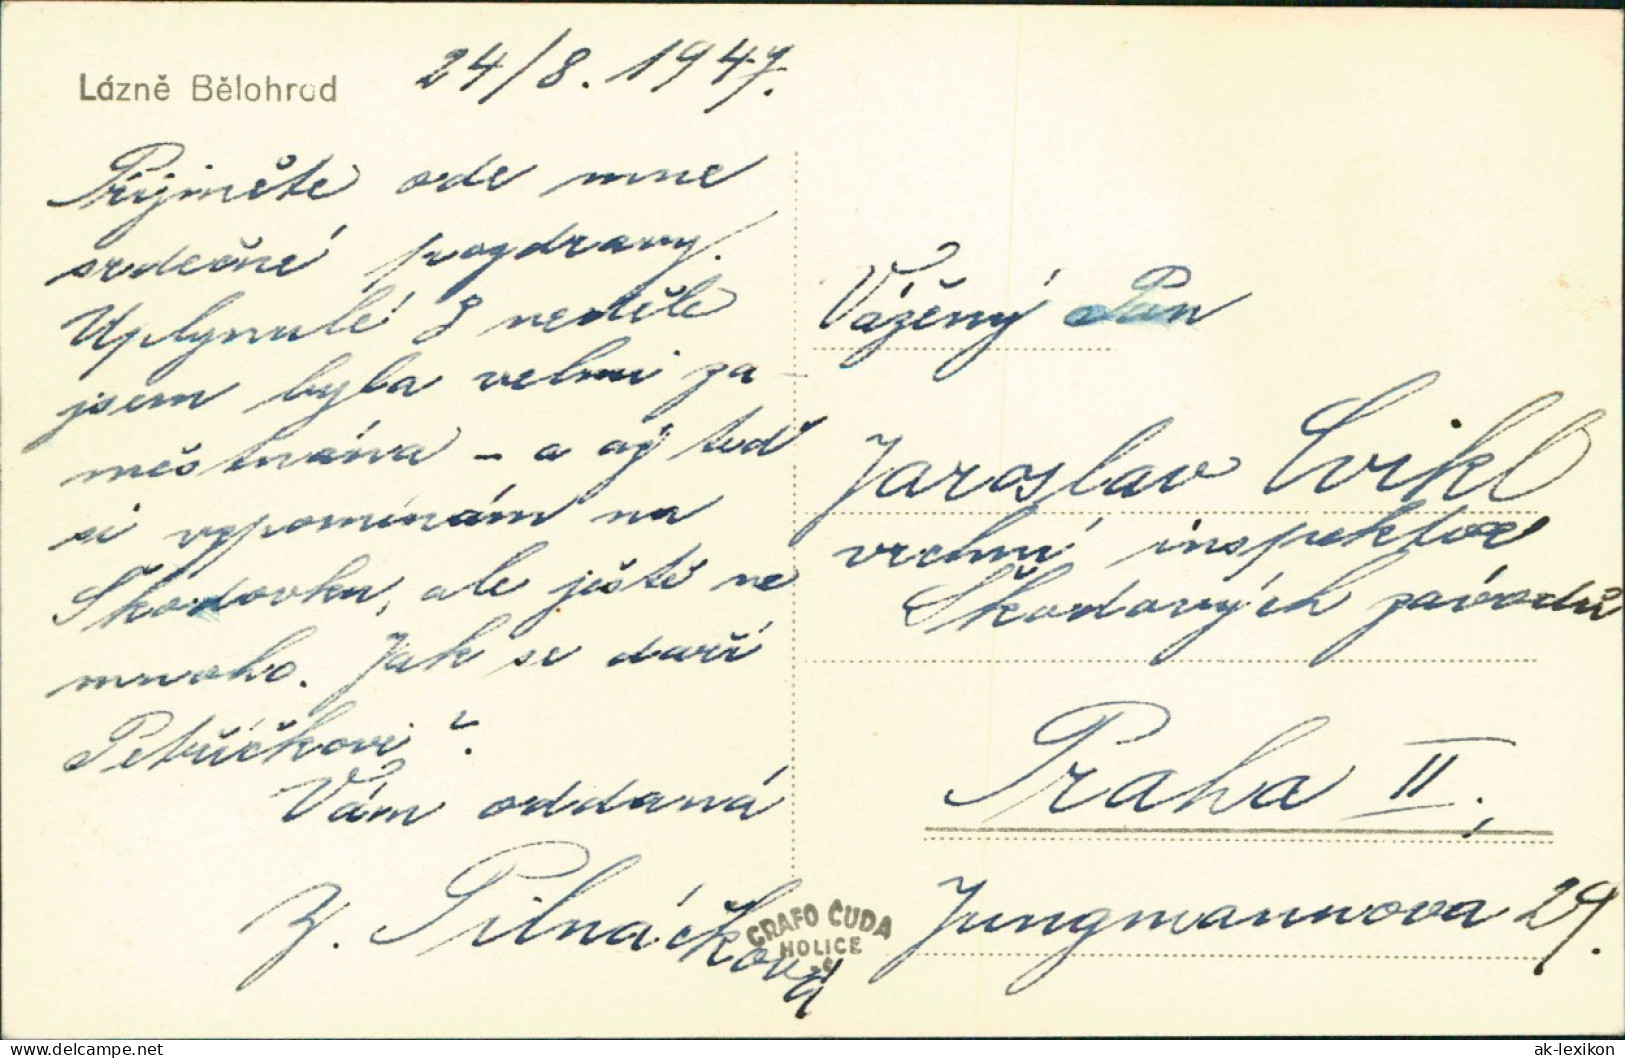 Lázně Bělohrad
24/8. 1947.
Přijměte ode mne
srdečné pozdravy.
Uplynulé 3 neděle
jsem byla velmi za-
městnána - a až teď
si vzpomínám na
Škodovku, ale ještě ne
mnoho. Jak se daří
Petříčkovi?
Vám oddaná
Z. Pilnáčková
GRAFO ČUDA
HOLICE
Vážený Pan
Jaroslav Cvikl
vrchní inspektor
Škodových závodů
Praha II,
Jungmannova 29.
(c) by www.ak-lexikon.de
ak-lexikon